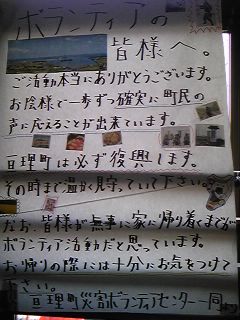 ボランティアの
皆様へ。
ご活動本当にありがとうございます。
お陰様で一歩ずつ確実に町民の
声に応えることが出来ています。
亘理町は必ず復興します。
その時まで温かく見守っていて下さい。
なお、皆様が無事に家に帰り着くまでが
ボランティア活動だと思っています。
お帰りの際には十分にお気をつけて
下さい。
亘理町災害ボランティアセンター一同より